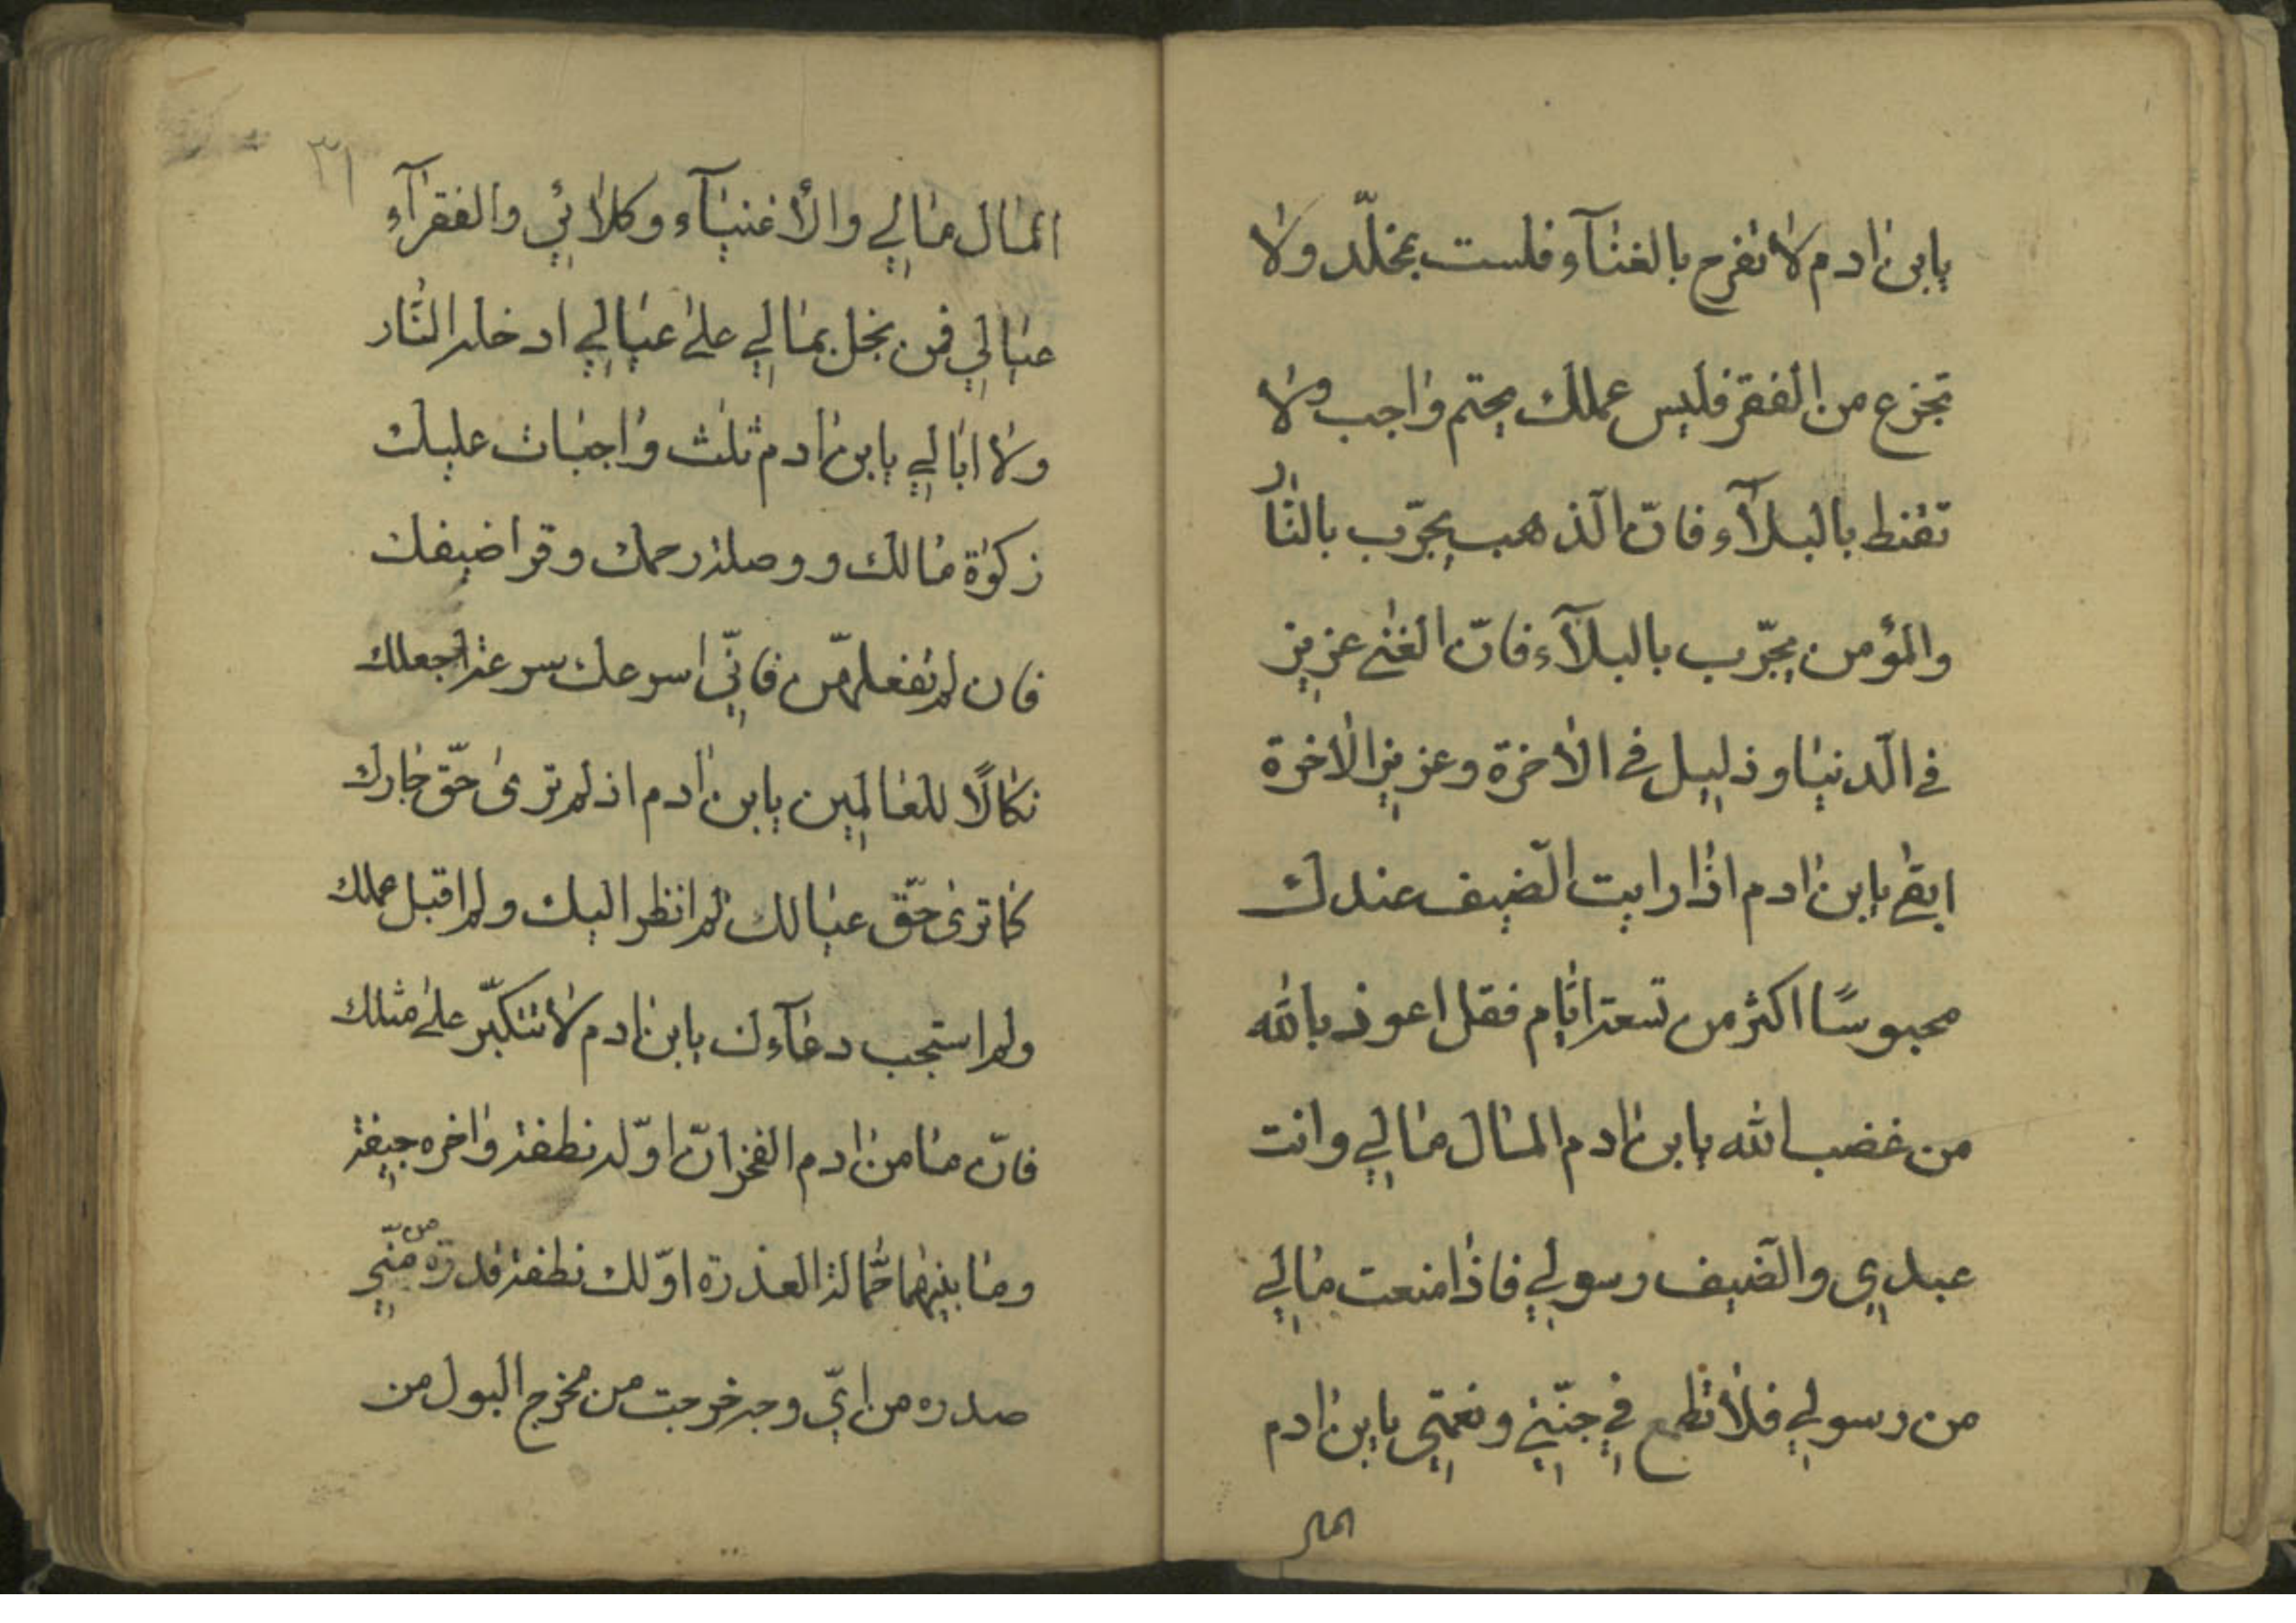 يابن ادم لا تفرح بالغنآء فلست بمخلّد ولا
تجزع من الفقر فليس عملك بحتم واجب ولا
تقنط بالبلآء فانّ الّذهب يجرّب بالنّار
والمؤمن يجرّب بالبلآء فانّ الغنى عزيز
في الّدنيا وذليل في الاخرة وعزيز الاخرة
ابقى يابن ادم اذا رايت الّضيف عندك
محبوسًا اكثر من تسعة ايّام فقل اعوذ بالله
من غضب الله يابن ادم المال مالي وانت
عبدي والّضيف رسولي فاذا منعت مالي
من رسولي فلا تطمع في جنّتي ونعمتي يابن ادم
المال
٣١
المال مالي والأغنيآء وكلائي والفقرآء
عيالي فمن بخل بمالي على عيالي ادخله النّار
ولا ابالي يابن ادم ثلث واجبات عليك
زكوة مالك ووصلة رحمك وقرا ضيفك
فان لم تفعلهّن فانّي اسرعك سرعة اجعلك
نكالًا للعالمين يابن ادم اذ لم ترى حّق جارك
كما ترى حّق عيالك لم انظر اليك ولم اقبل عملك
ولم استجب دعآءك يابن ادم لا تتكبّر على مثلك
فانّ مامن ادم الفخر انّ اوّله نطفة واخره جيفة
وما بينهما حّمالة العذرة اوّلك نطفة قدرة من منّي
صدره من ايّ وجه خرجت من مخرج البول من